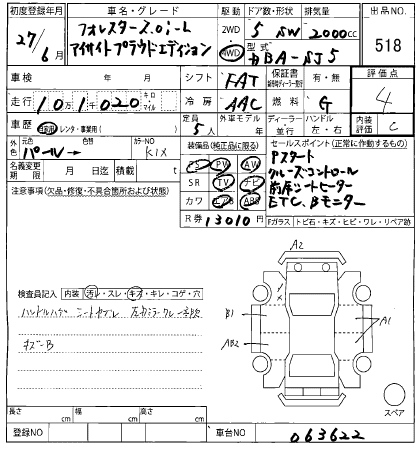 初度登録年月 車名・グレード 駆動 ドア数・形状 排気量 出品NO.
27/6月 フォレスター2.0i-L アイサイトプラウドエディション 2WD 4WD 5 SW 2000cc 518
型式 DBA-SJ5
車検 年 月 シフト FAT 保証書 有・無 評価点 4
走行 10万1千020 キロ マイル 冷房 AAC 燃料 G
車歴 自家用 レンタ・事業用( ) 定員 5人 外車モデル 年 ディーラー 並行 ハンドル 左・右 内装評価 C
外色 元色 パール 色替 カラーNO K1X
装備品(純正品に限る) セールスポイント(正常に作動するもの)
名義変更期限 月 日迄 積載 t
PS PW AW
SR TV ナビ
カワ エアB ABS
R券 13010円
Pスタート
クルーズコントロール
前席シートヒーター
ETC、Bモニター
注意事項(欠品・修復・不具合箇所および状態)
Fガラス トビ石・キズ・ヒビ・ワレ・リペア跡
A2
検査員記入 内装 汚レ・スレ・キズ・キレ・コゲ・穴
B1
A1
AB2
キズ-B
スペア
長さ cm 幅 cm 高さ cm
登録NO 車台NO 063622